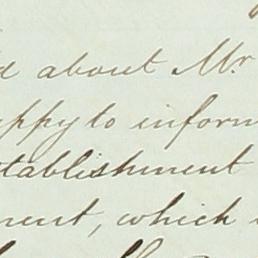 about Mr.
happy to inform
establishment
ment, which